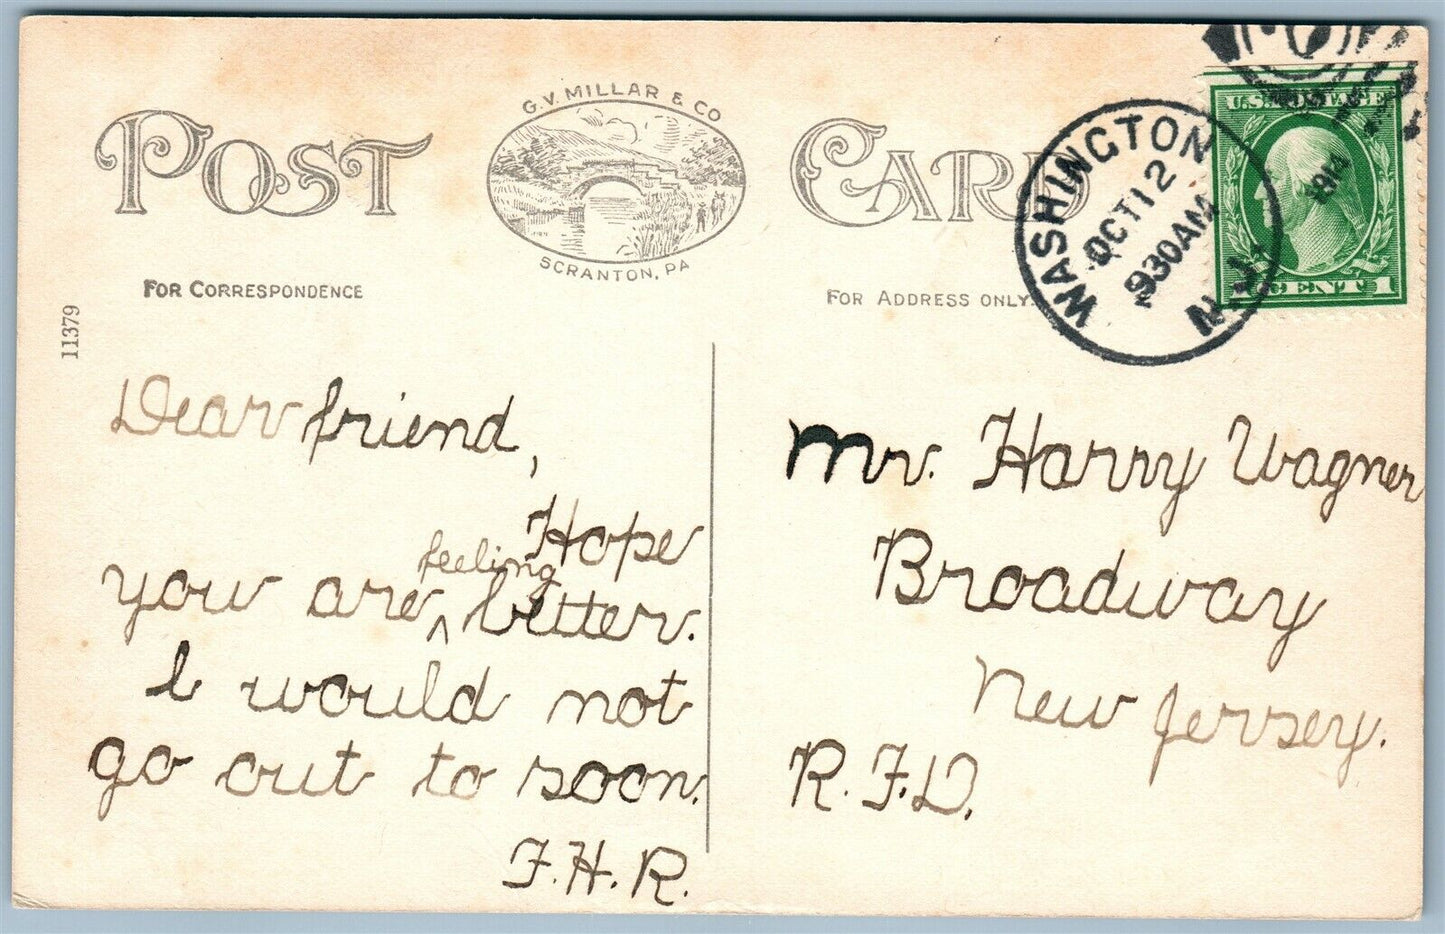 G.V. MILLAR & CO
POST CARD
SCRANTON, PA
FOR CORRESPONDENCE
FOR ADDRESS ONLY.
11379
WASHINGTON
OCT 12
930AM
1914
N.J.
U.S. POSTAGE
1 CENT 1
Dear friend,
Hope
feeling
you are ^ better.
I would not
go out to soon.
F.H.R.
Mr. Harry Wagner
Broadway
New Jersey.
R.F.D.